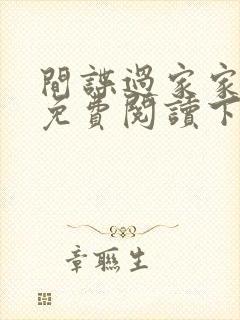 間諜過家家
免費閱讀下
章聯生